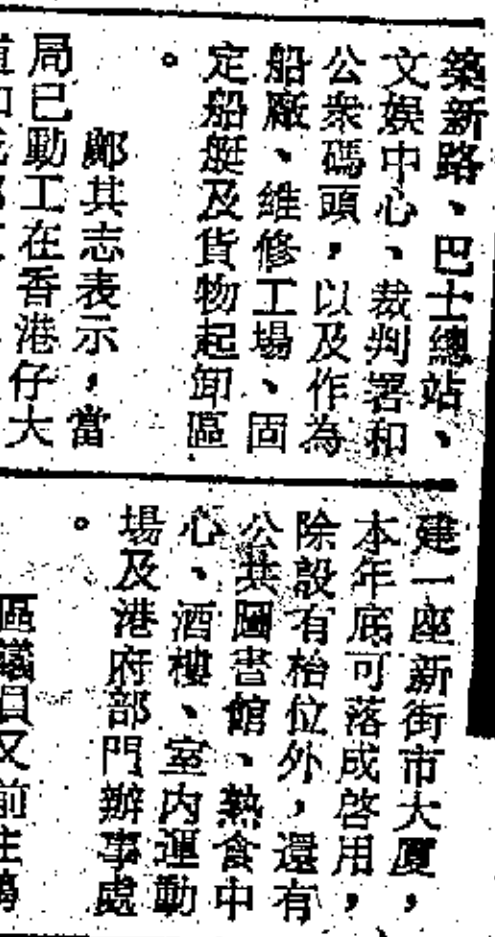 築新路、巴士總站、
文娛中心、裁判署和
公衆碼頭，以及作為
船廠、維修工場、固
定船艇及貨物起卸區
。
鄺其志表示，當
局已動工在香港仔大
建一座新街市大厦，
本年底可落成啓用，
除設有枱位外，還有
公共圖書館、熟食中
心、酒樓、室内運動
場及港府部門辦事處
。
區議員又前往鴨